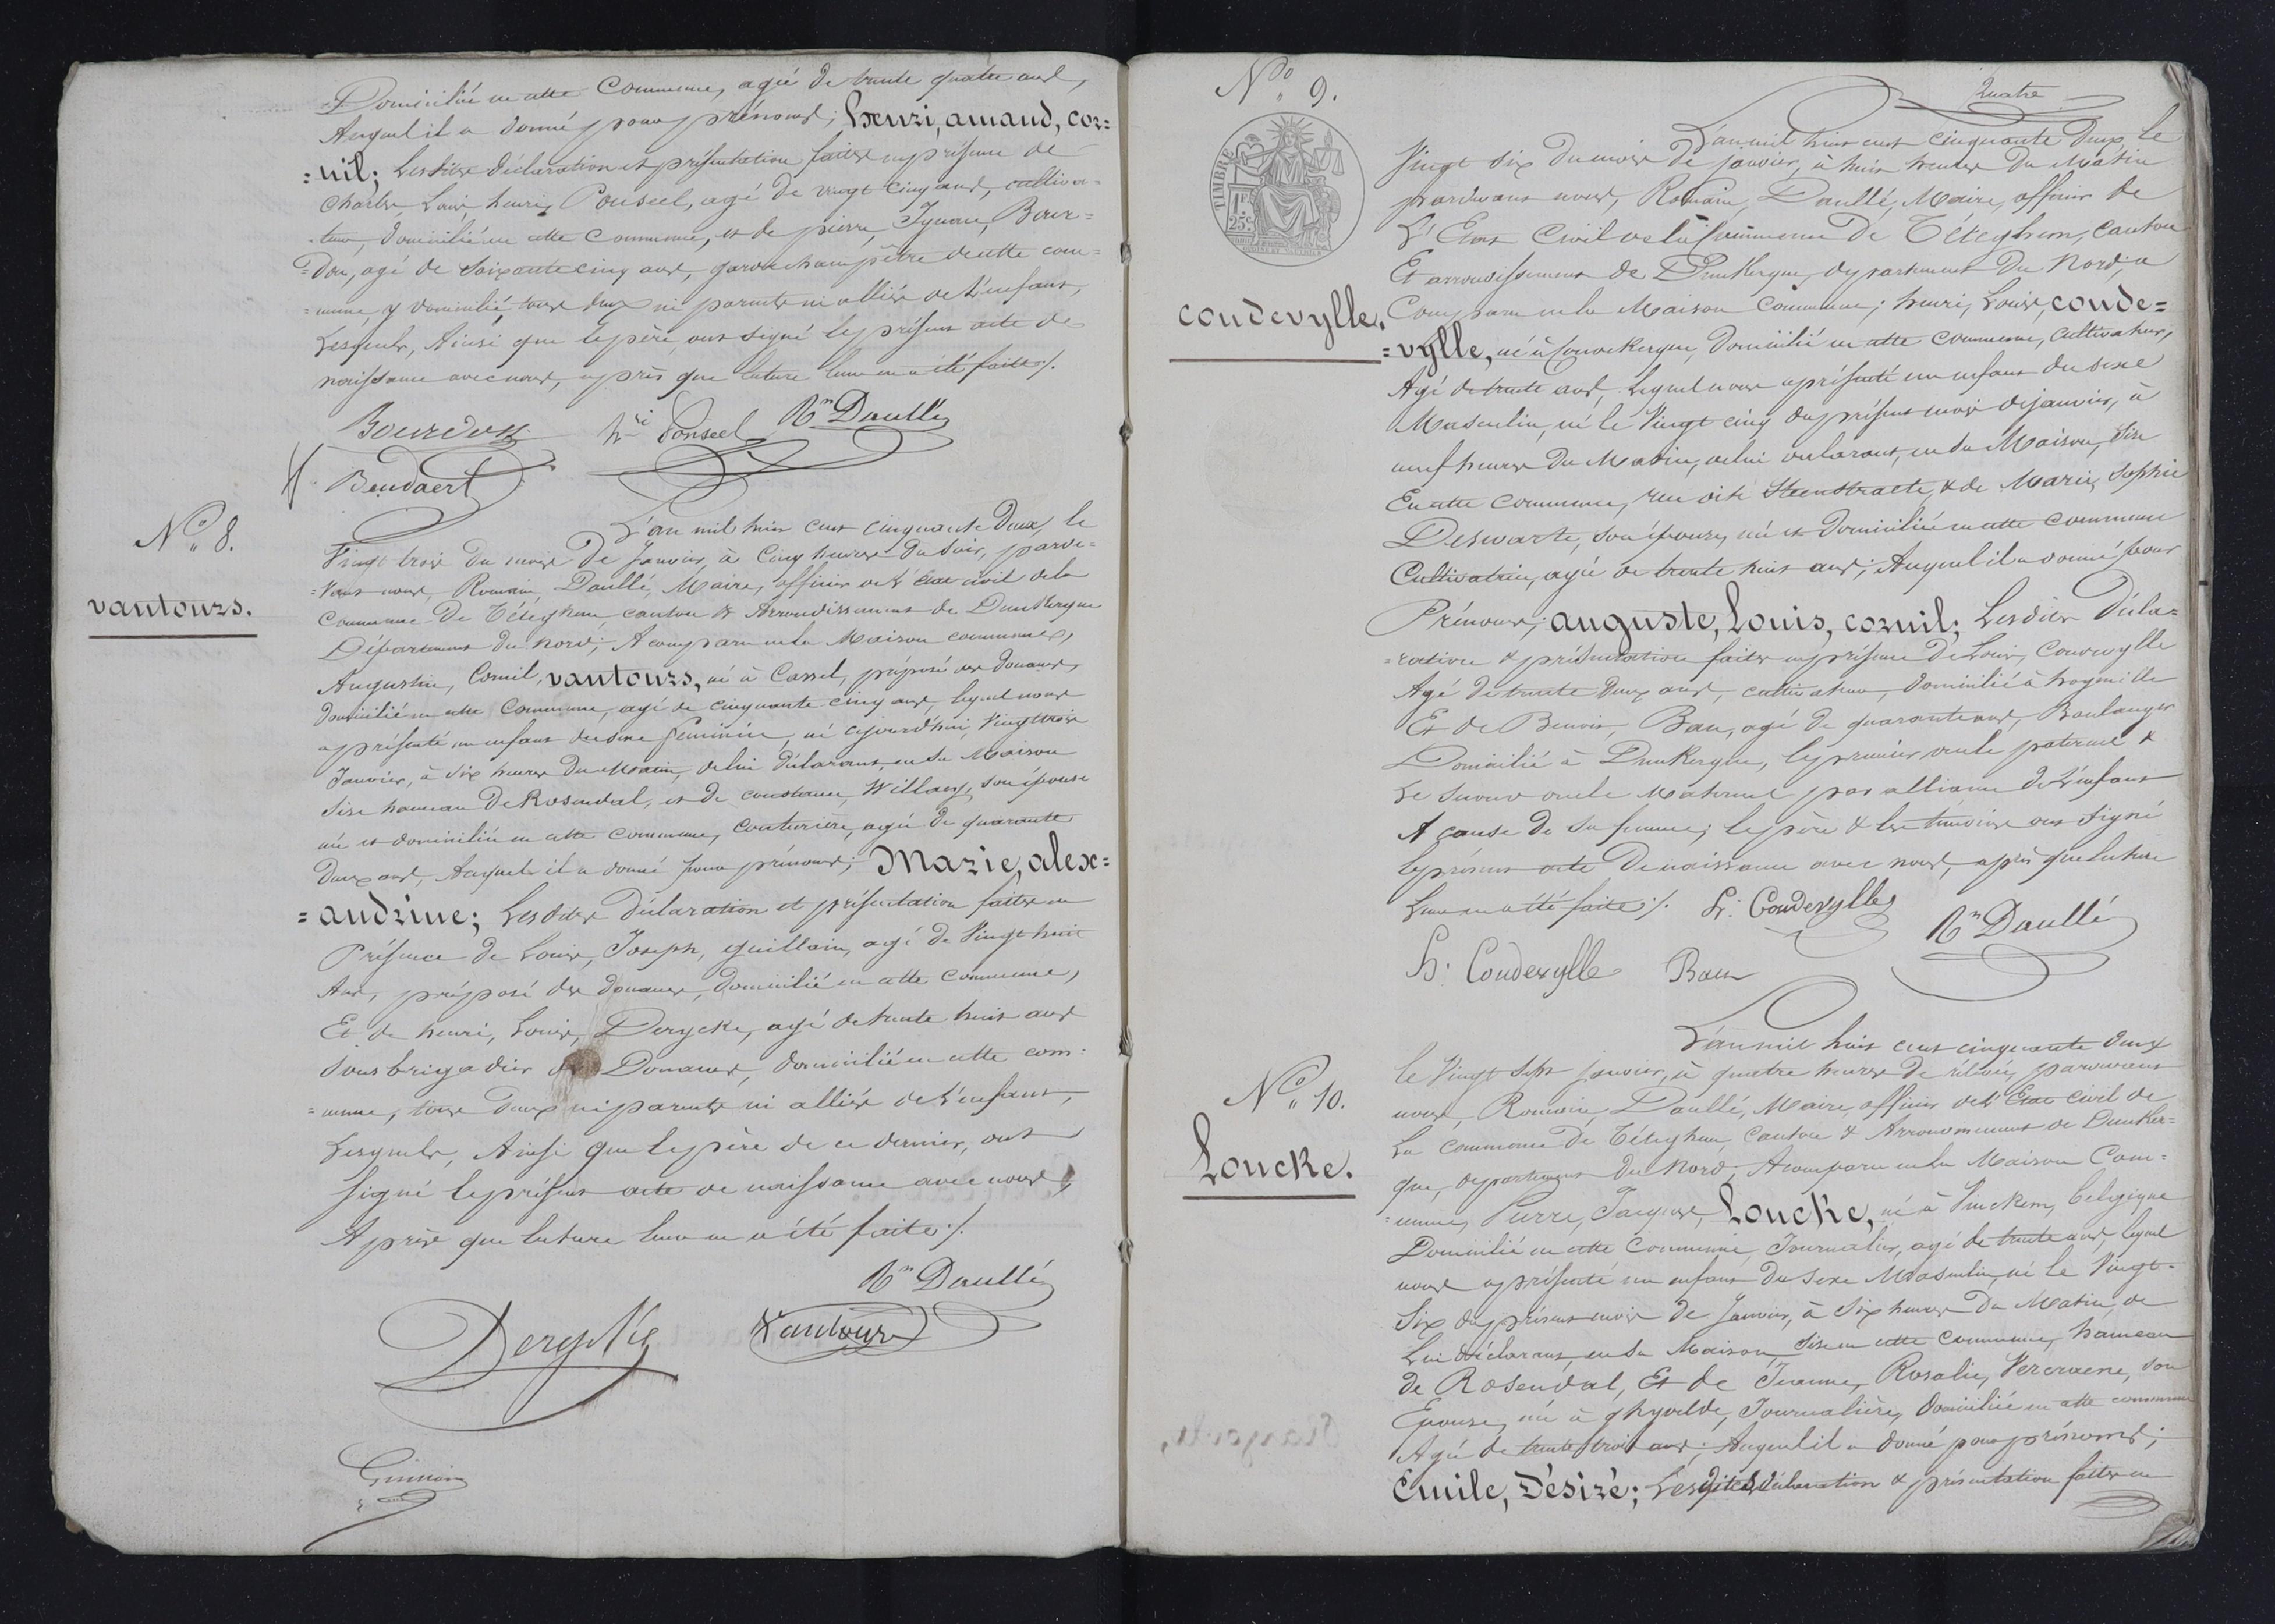 Domiciliée en cette Commune, agée de trente quatre ans,
Auquel il a donné pour prénoms; henri, amand, cor=
=nil; Lesdites déclaration et présentation faites en présence de
Charles, Louis, henri, Ponseel, agé de vingt cinq ans, cultiva-
-teur, domicilié en cette Commune, et de pierre, Ignace, Bour=
=don, agé de soixante cinq ans, garde champêtre de cette com=
=mune, y domicilié, tous deux ni parents ni alliés de L'enfant,
Lesquels, Ainsi que le père, ont signé le présent acte de
naissance avec nous, après que lecture leur en a été faite ./.
Bourdon hri Ponseel Rn Daullé
Beudaert
N° 8.
vantours.
L'an mil huit cent cinquante Deux, le
Vingt trois du mois De Janvier, à Cinq heures du Soir, parde=
=vant nous, Romain, Daullé, Maire, officier de L'état civil de la
Commune De Téteghem, canton & Arrondissement de Dunkerque
Département du Nord; A comparu en la Maison commune,
Augustin, Cornil, vantours, né à Cassel, préposé des Douanes,
domicilié en cette Commune, agé de cinquante cinq ans, lequel nous
a présenté un enfant du sexe féminin, né cejourd'hui, Vingt trois
Janvier, à six heures du Matin, de lui déclarant, en sa Maison
Sise hameau De Rosendal, et de constance, Willaey, son épouse
née et domiciliée en cette commune, couturière, agée de quarante
Deux ans, Auquel il a donné pour prénoms; Marie, alex=
=andrine; Lesdites Déclaration et présentation faites en
Présence de Louis, Joseph, guillain, agé de Vingt huit
Ans, préposé des Douanes, Domicilié en cette commune,
Et de henri, Louis, Derycke, agé de trente huit ans
Sous brigadier des Douanes, domicilié en cette com=
=mune, tous Deux ni parents ni alliés de L'enfant,
Lesquels, Ainsi que le père de ce dernier, ont
signé le présent acte de naissance avec nous,
Après que lecture leur en a été faite ./.
Rn Daullé
Derycke Vantours
N° 9.
Quatre
TIMBRE
1F.
25c.
coudevylle.
L'an mil huit cent cinquante Deux, le
Vingt six du mois de janvier, à huit heures du Matin
pardevant nous, Romain, Daullé, Maire, officier de
L'Etat Civil de la Commune De Téteghem, Canton
Et arrondissement de Dunkerque, département du Nord, a
Comparu en la Maison Commune; henri, Louis, coude=
=vylle, né à Coudekerque, Domicilié en cette commune, Cultivateur,
Agé de trente ans, Lequel nous a présenté un enfant du sexe
Masculin, né le Vingt cinq du présent mois de janvier, à
neuf heures du Matin, de lui déclarant, en sa Maison, Sise
En cette commune, rue dite Steenstraete, & de Marie, Sophie
Deswarte, Son épouse, née et Domiciliée en cette commune
Cultivatrice, agée de trente huit ans; Auquel il a donné pour
Prénoms; auguste, Louis, cornil; Lesdites Décla=
=ration & présentation faites en présence De Louis, Coudevylle
Agé de trente Deux ans, cultivateur, Domicilié à hoymille
Et de Benoit, Ban, agé de quarante ans, Boulanger
Domicilié à Dunkerque, le premier oncle paternel &
Le second oncle Maternel par alliance de L'enfant
A cause de sa femme; le père & les témoins ont signé
le présent acte De naissance avec nous, après que lecture
Leur en a été faite ./. L. Coudevylle
H. Coudevylle Rn Daullé
N° 10.
Loucke.
L'an mil huit cent cinquante deux
le Vingt Sept janvier, à quatre heures De relevée, pardevant
nous, Romain, Daullé, Maire, officier de L'Etat civil de
La commune De Téteghem, Canton & Arrondissement de Dunker=
que, département du Nord; A comparu en la Maison Com=
=mune, Pierre, Jacques, Loucke, né à Vinckem, belgique
Domicilié en cette Commune, Journalier, agé de trente ans, lequel
nous a présenté un enfant du sexe Masculin, né le Vingt-
Six du présent mois de Janvier, à Six heures du Matin, de
Lui déclarant, en sa Maison, Sise en cette Commune, hameau
de Rosendal, Et de Jeanne, Rosalie, Vercraene, son
Epouse, née à ghyvelde, Journalière, Domiciliée en cette commune
Agée de trente trois ans; Auquel il a donné pour prénoms;
Emile, Désiré; Lesdites déclaration & présentation faites en